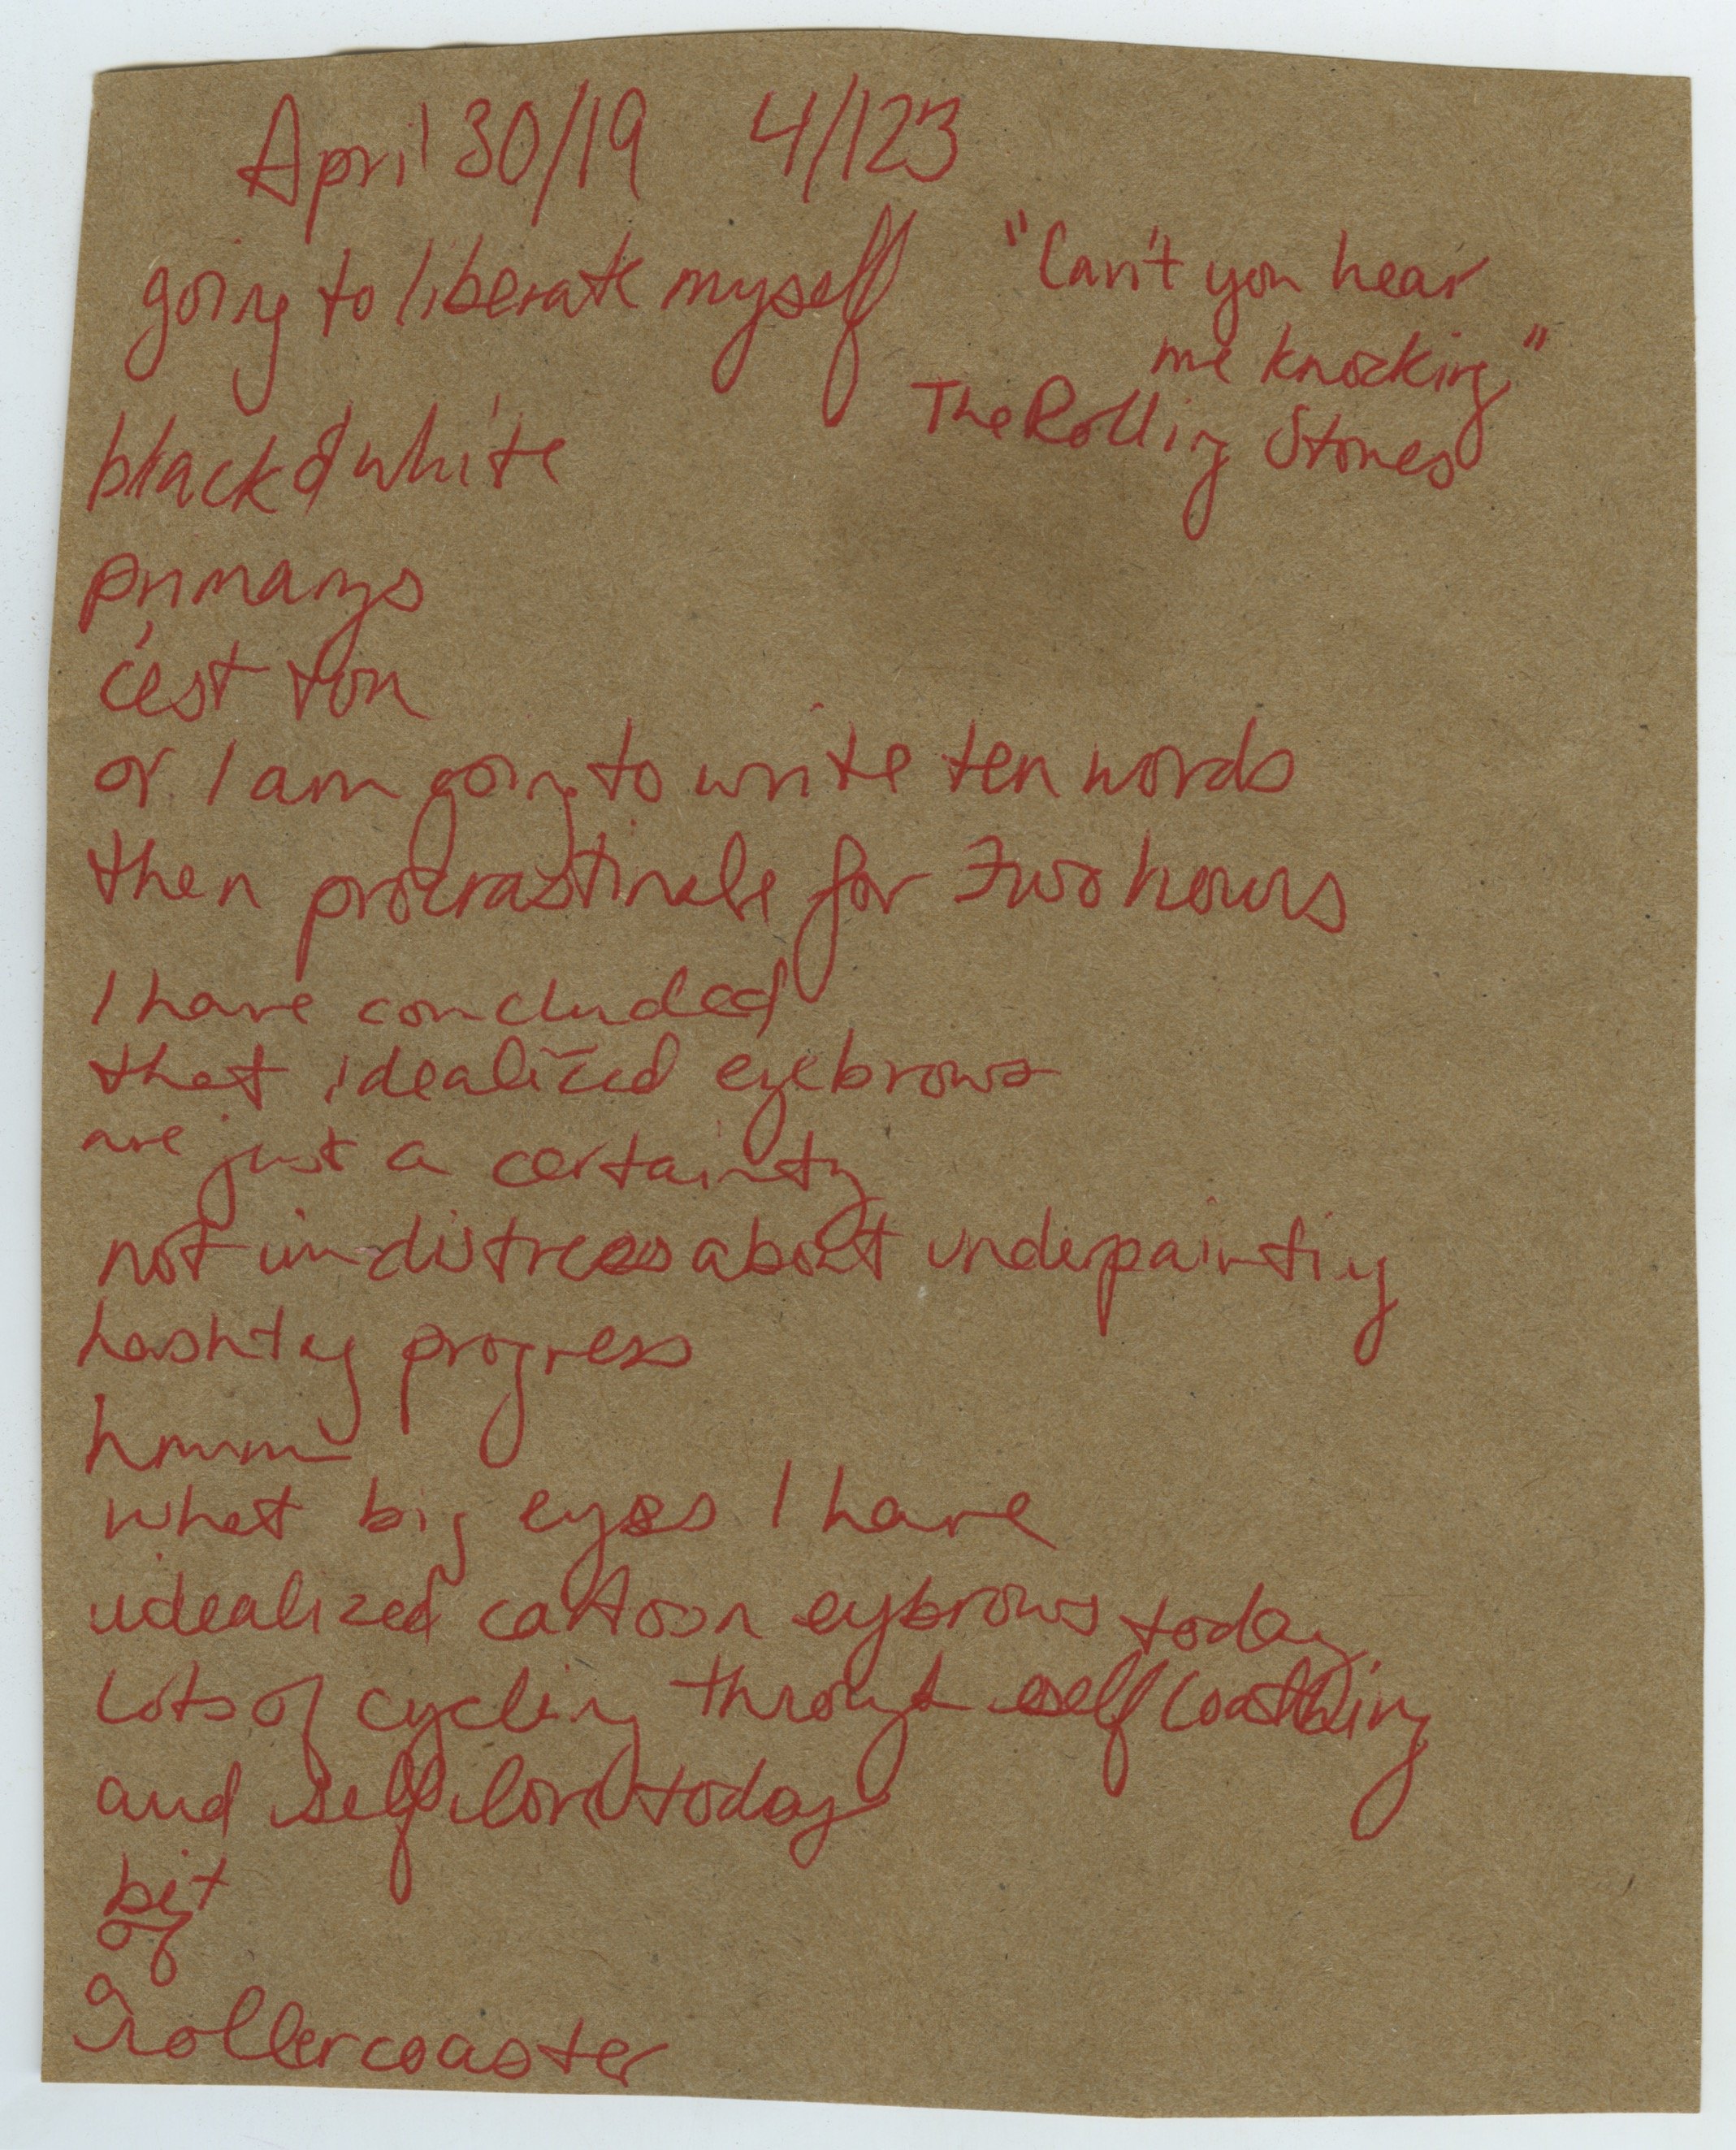 April 30/19 4/123
going to liberate myself
"Can't you hear
me knocking"
The Rolling Stones
black & white
primarys
c'est ton
or I am going to write ten words
then procrastinate for two hours
I have concluded
that idealized eyebrows
are just a certainty
not in distress about underpainting
hashtag progress
hmmm
what big eyes I have
idealized cartoon eybrows today
lots of cycling through self loathing
and self love today
bit
of
a
rollercoaster